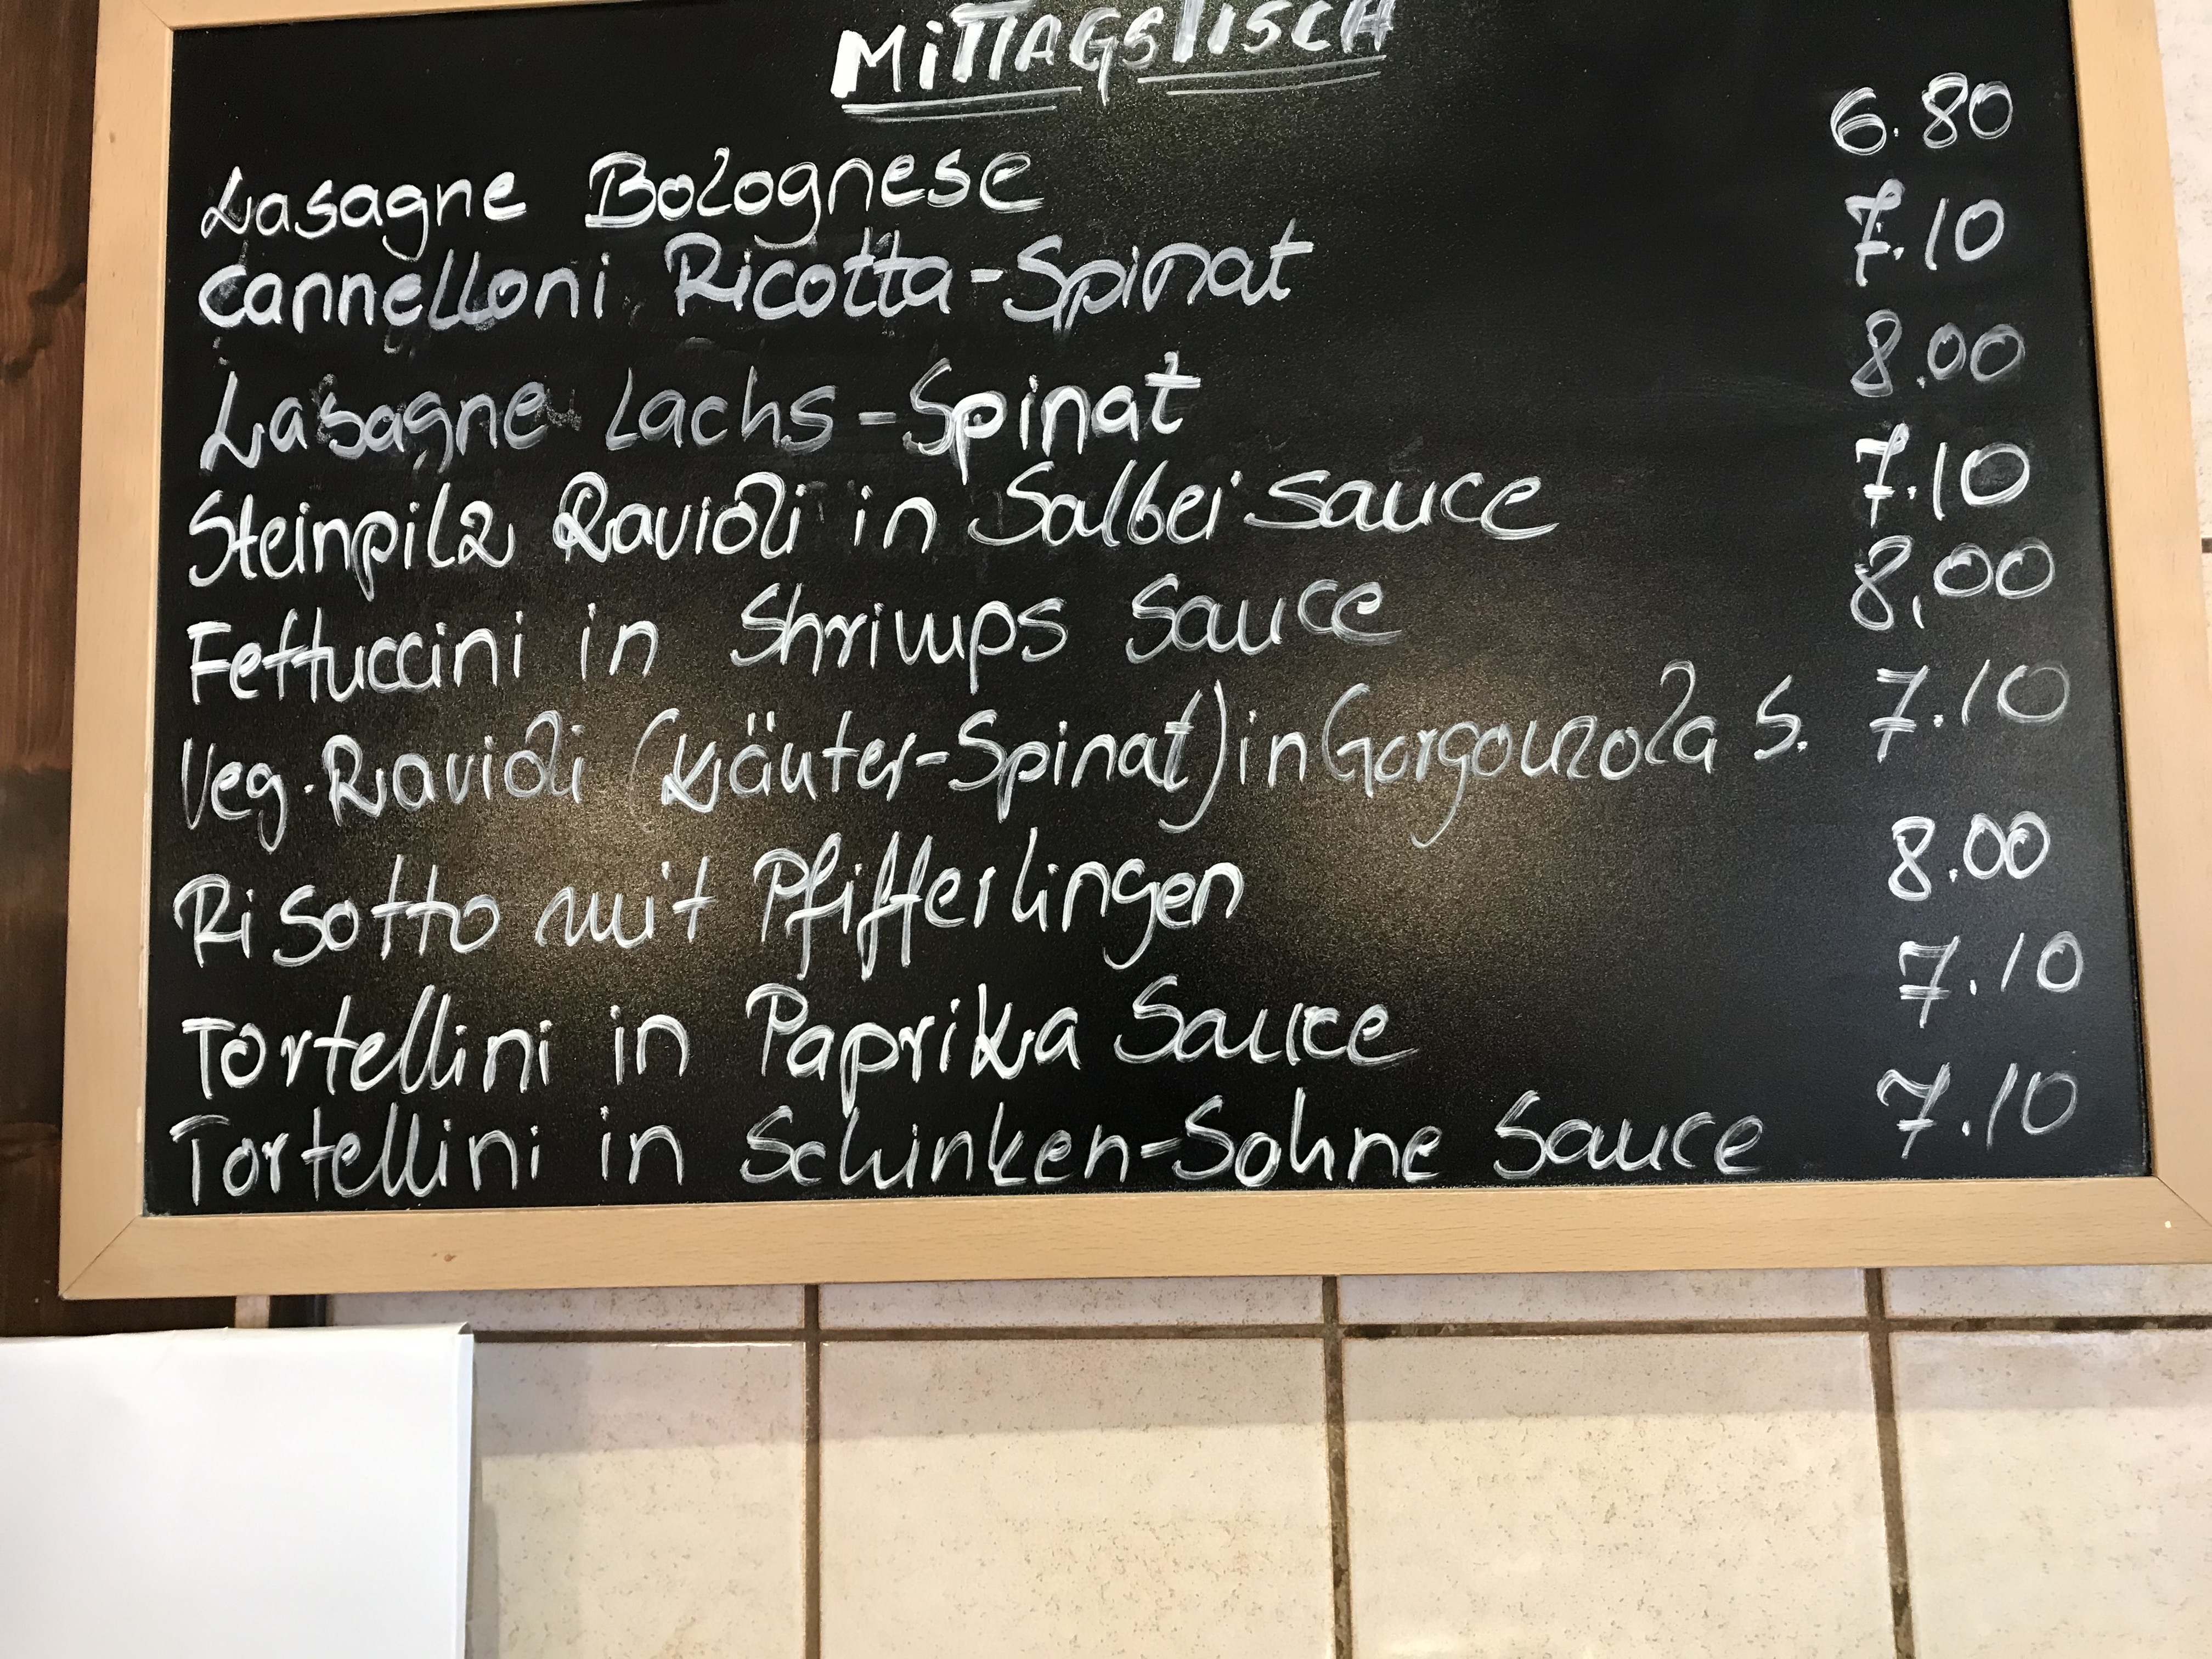 MITTAGSTISCH
Lasagne Bolognese 6.80
Cannelloni Ricotta-Spinat 7.10
Lasagne Lachs-Spinat 8.00
Steinpilz Ravioli in Salbei Sauce 7.10
Fettuccini in Shrimps Sauce 8,00
Veg. Ravioli (Kräuter-Spinat) in Gorgonzola S. 7.10
Risotto mit Pfifferlingen 8.00
Tortellini in Paprika Sauce 7.10
Tortellini in Schinken-Sohne Sauce 7.10